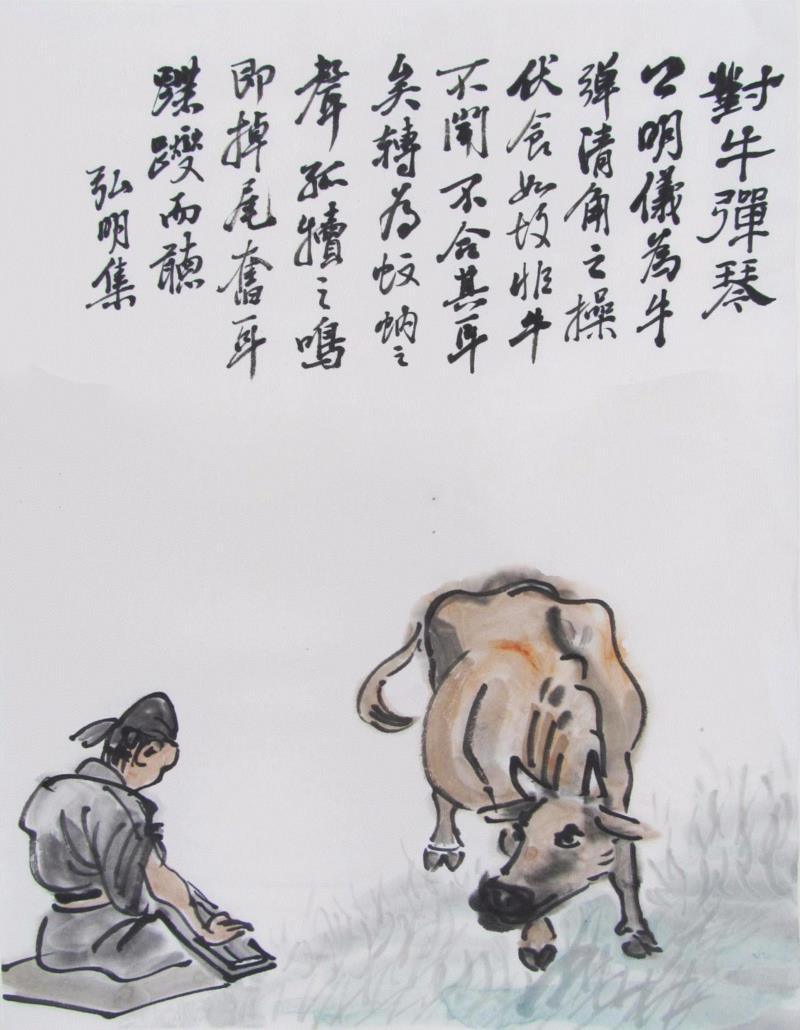 對牛彈琴
公明儀為牛
弹清角之操
伏食如故非牛
不聞不合其耳
矣轉為蚊蚋之
聲孤犢之鳴
即掉尾奮耳
蹀躞而聽
弘明集